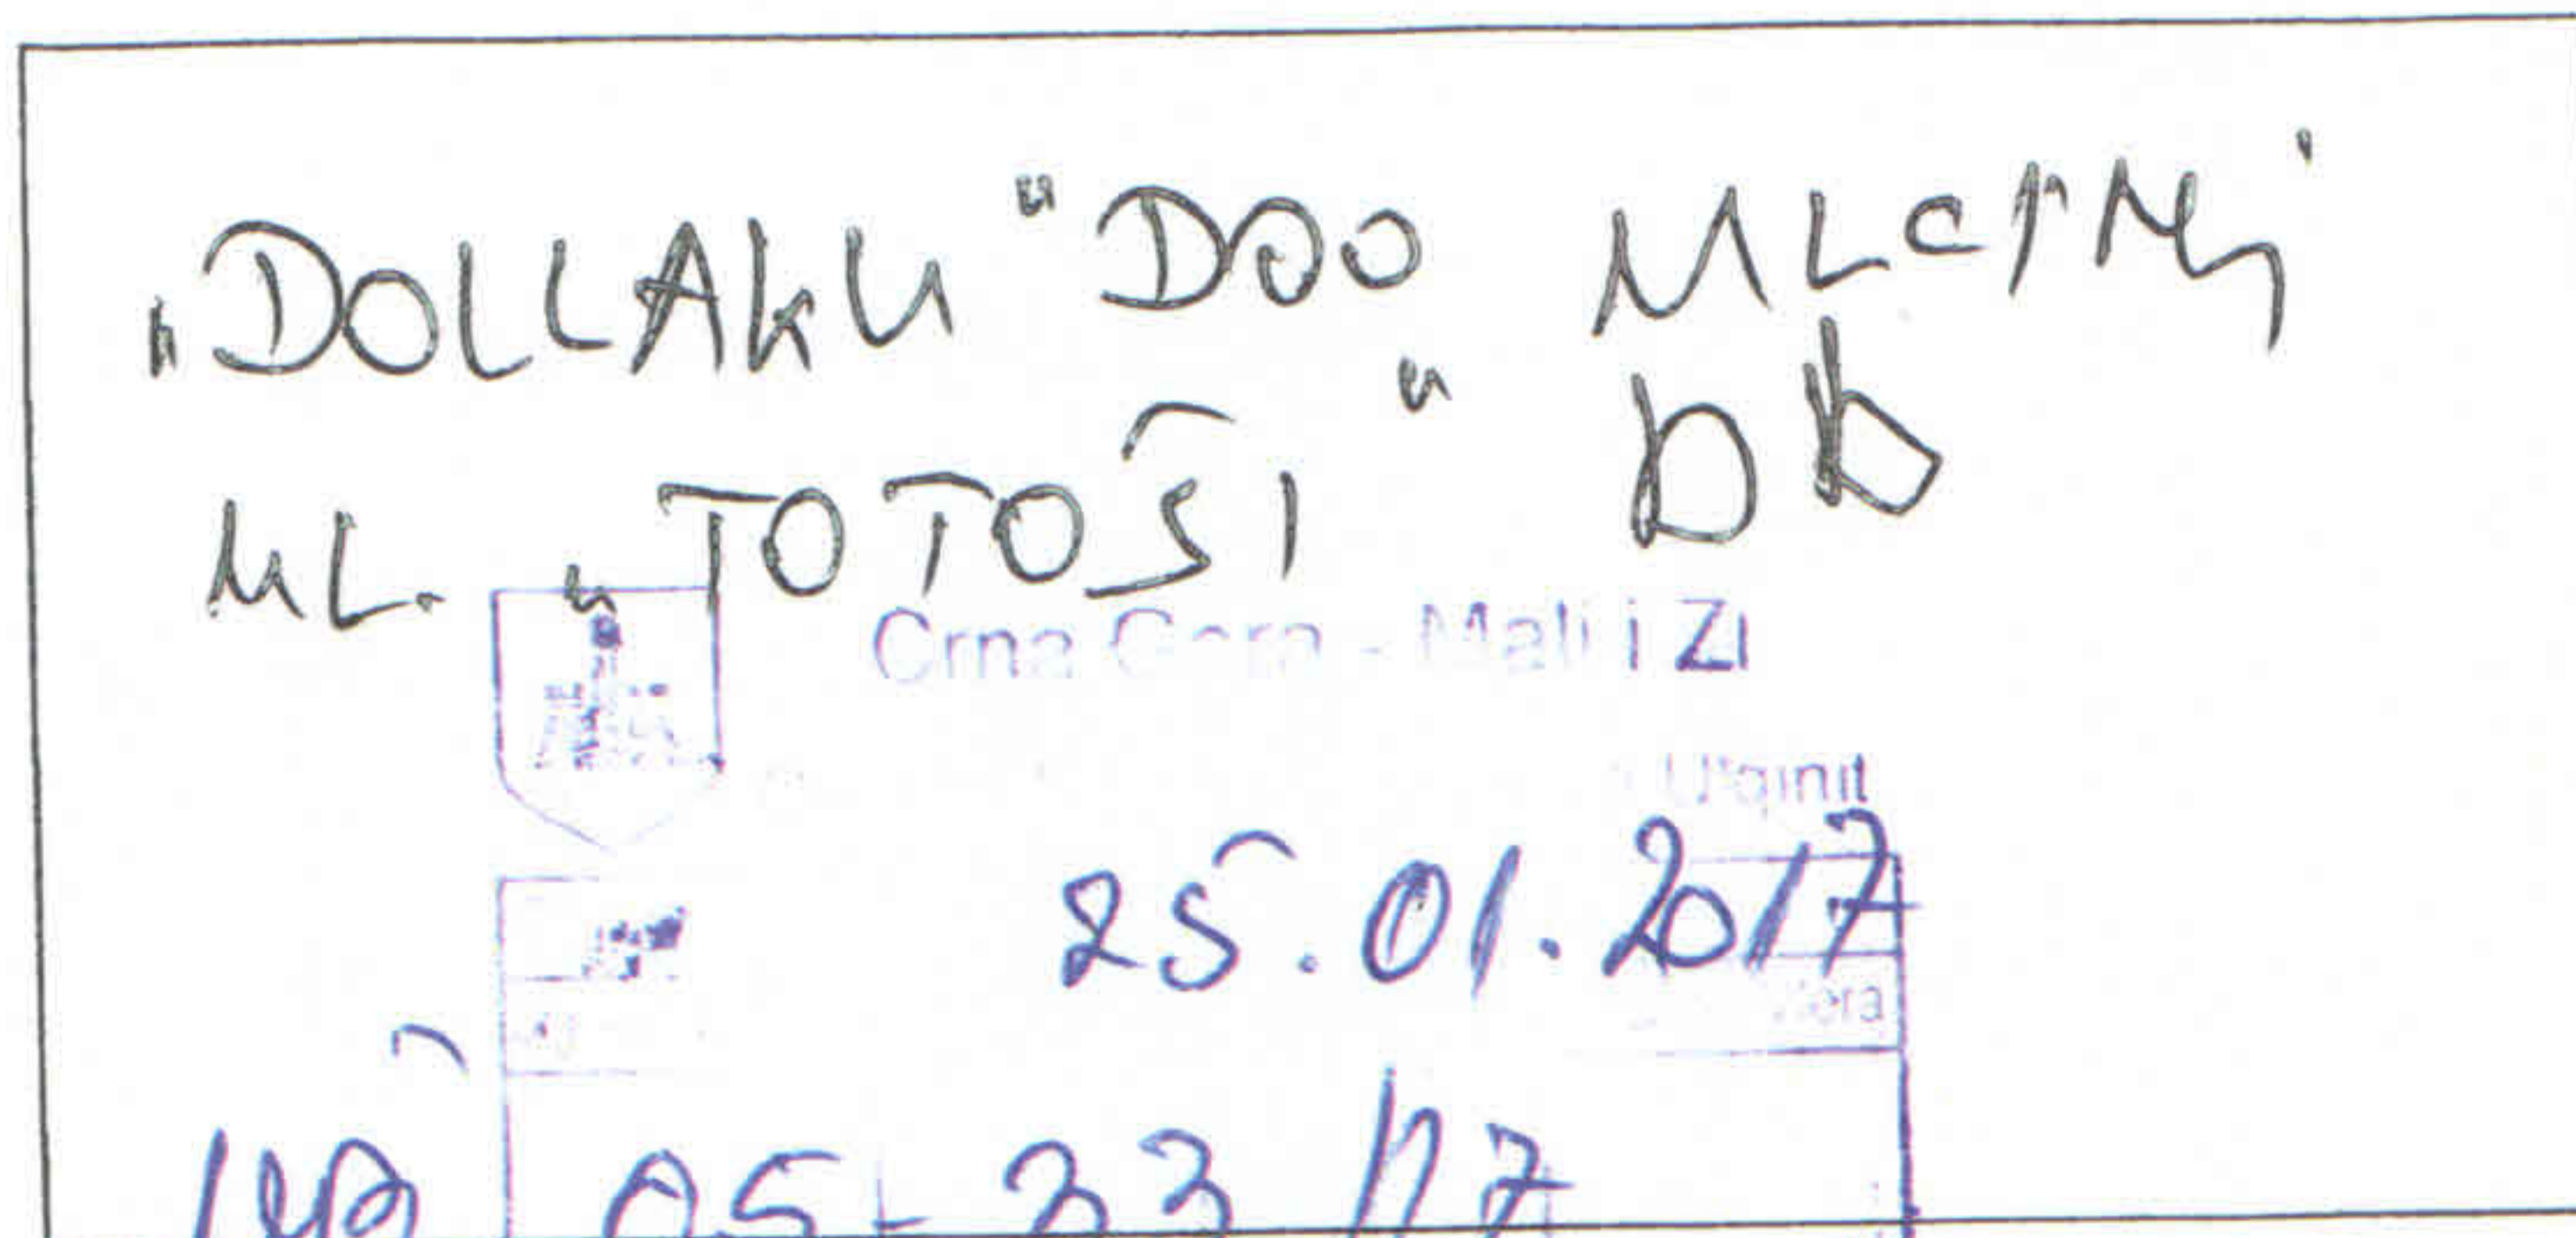 „DOLLAKU" DOO ULCINJ
UL. „TOTOŠI" bb
Crna Gora - Mali i Zi
Ulqinit
25.01.2017
05-